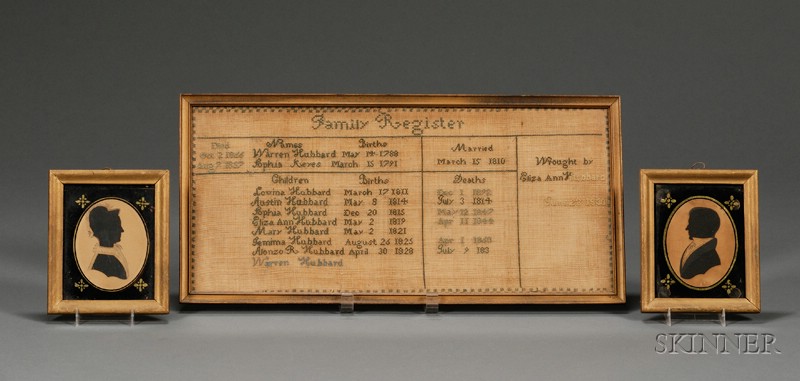 Family Register
Died Names Births Married
Warren Hubbard May 14 1788 March 15 1810
Sophia Keyes March 15 1791
Wrought by
Eliza Ann
Children Births Deaths
Lovina Hubbard March 17 1811 Dec 1
Austin Hubbard May 8 1814 July 3 1814
Sophia Hubbard Dec 20 1815 May
Eliza Ann Hubbard May 2 1819 Apr 11
Mary Hubbard May 2 1821
Jemima Hubbard August 26 1825 Apr 1
Alonzo R Hubbard April 30 1828 July 9 183
Warren Hubbard
SKINNER